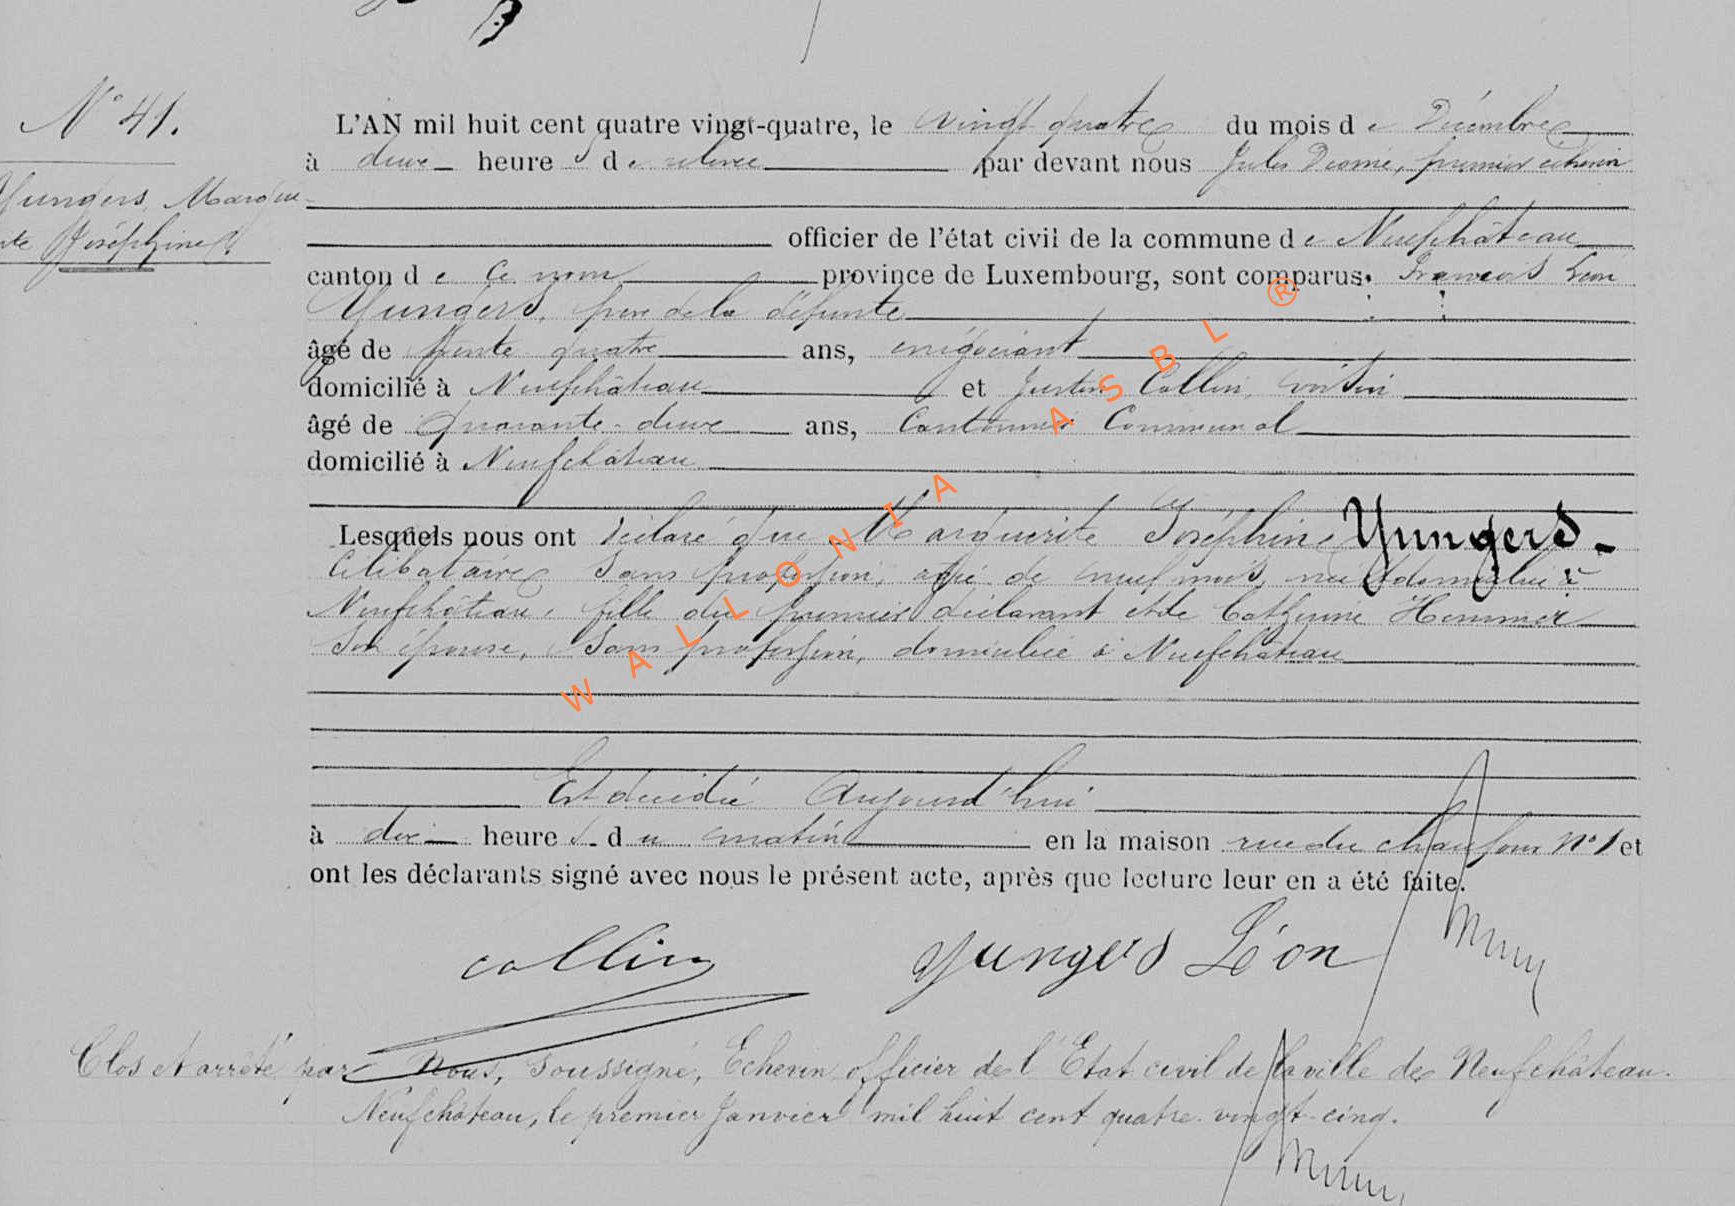 N° 41.
Yungers, Margue-
rite Joséphine.
L'AN mil huit cent quatre vingt-quatre, le vingt quatre du mois de Décembre
à deux heures de relevée par devant nous Jules premier échevin
officier de l'état civil de la commune de Neufchâteau
canton de ce nom province de Luxembourg, sont comparus: François Léon
Yungers, père de la défunte
âgé de trente quatre ans, négociant
domicilié à Neufchâteau et Justin Collin, voisin
âgé de Quarante-deux ans, Cantonnier Communal
domicilié à Neufchâteau
Lesquels nous ont déclaré que Marguerite Joséphine Yungers-
Célibataire sans profession, agée de neuf mois, née et domiciliée à
Neufchâteau, fille du premier déclarant et de Catherine Hemmer
son épouse, sans profession, domiciliée à Neufchâteau
Est décédée Aujourd'hui
à dix heures du matin en la maison rue du chaufour n° 1 et
ont les déclarants signé avec nous le présent acte, après que lecture leur en a été faite.
collin Yungers Léon
Clos et arrêté par Nous, soussigné, Echevin officier de l'Etat civil de la ville de Neufchâteau.
Neufchâteau, le premier Janvier mil huit cent quatre-vingt-cinq.
WALLONIA ASBL ®